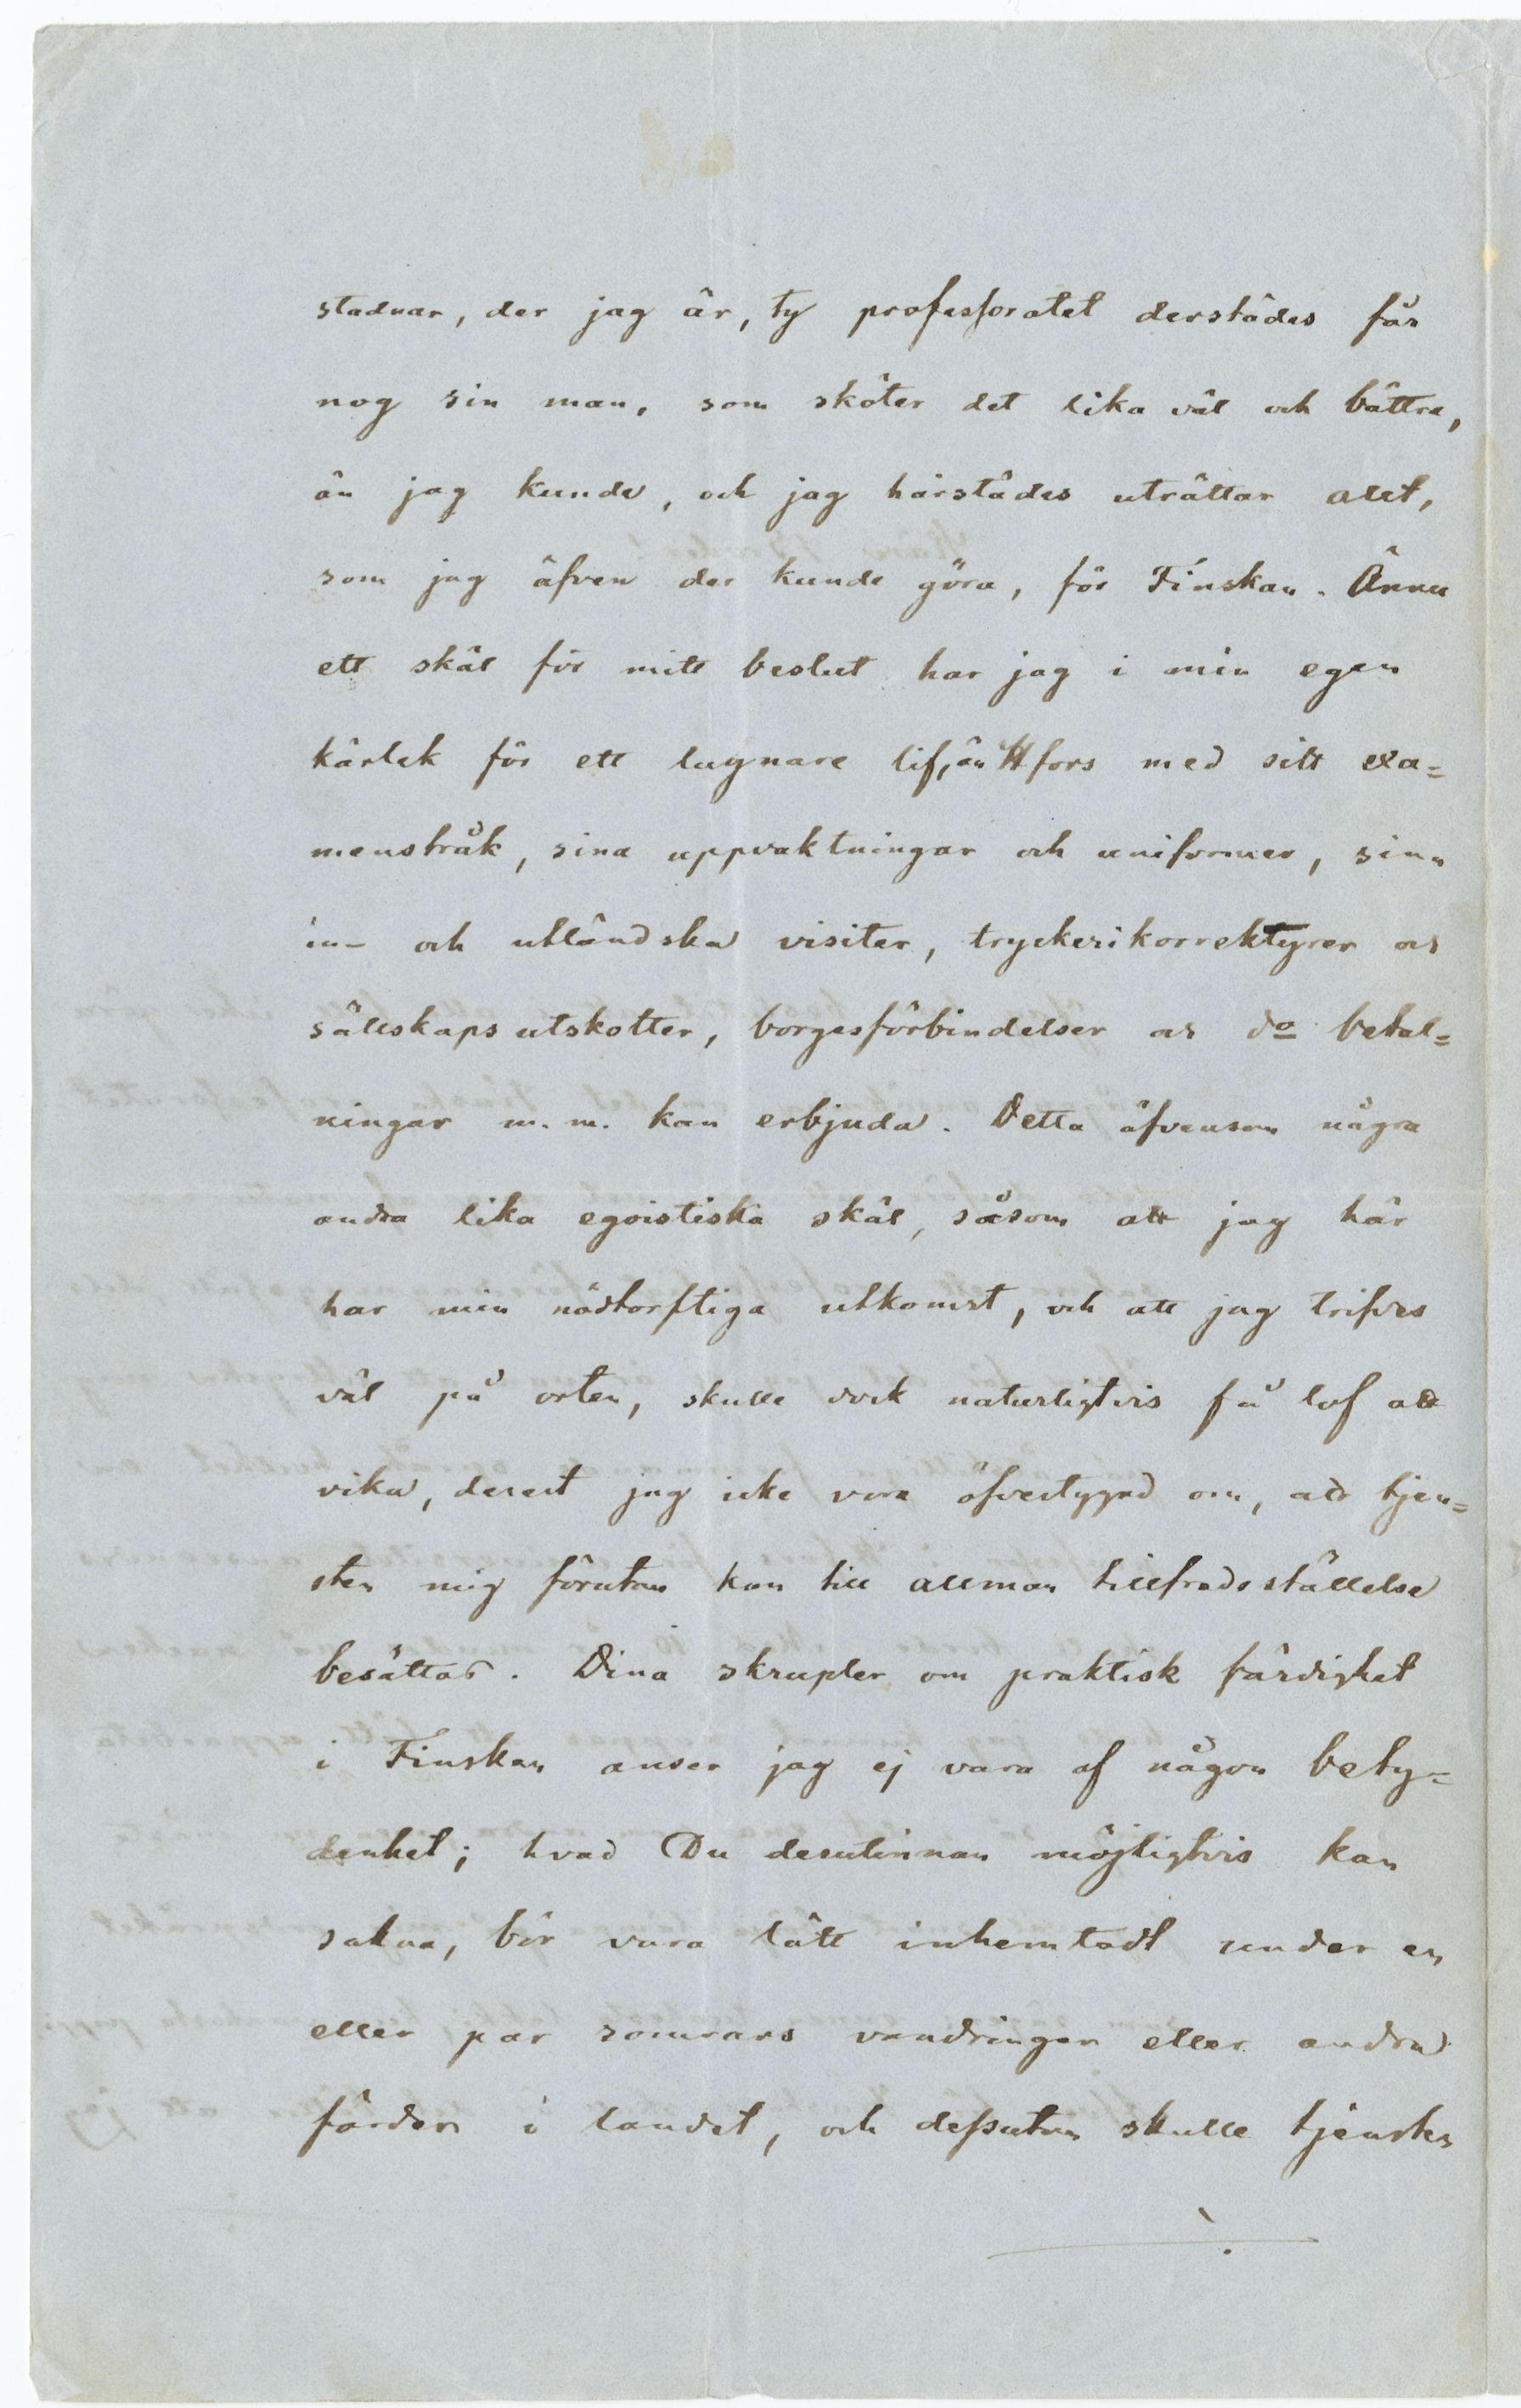 stadnar, der jag är, ty professoratet derstädes får
nog sin man, som sköter det lika väl och bättre,
än jag kunde, och jag härstädes uträttar allt,
som jag äfven der kunde göra, för Finskan. Ännu
ett skäl för mitt beslut har jag i min egen
kärlek för ett lugnare lif, än Hfors med sitt exa=
mensbråk, sina uppvaktningar och uniformer, sina
in- och utländska visiter, tryckerikorrektyrer och
sällskapsutskotter, borgesförbindelser och do betal=
ningar m.m. kan erbjuda. Detta äfvensom några
andra lika egoistiska skäl, såsom att jag här
har min nödtorftiga utkomst, och att jag trifves
väl på orten, skulle dock naturligtvis få lof att
vika, derest jag icke vore öfvertygad om, att tjen=
sten mig förutan kan till allmän tillfredsställelse
besättas. Dina skrupler om praktisk färdighet
i Finskan anser jag ej vara af någon bety=
denhet; hvad Du derutinnan möjligtvis kan
sakna, bör vara lätt inhemtadt under en
eller par somrars vandringar eller andra
färder i landet, och dessutom skulle tjensten